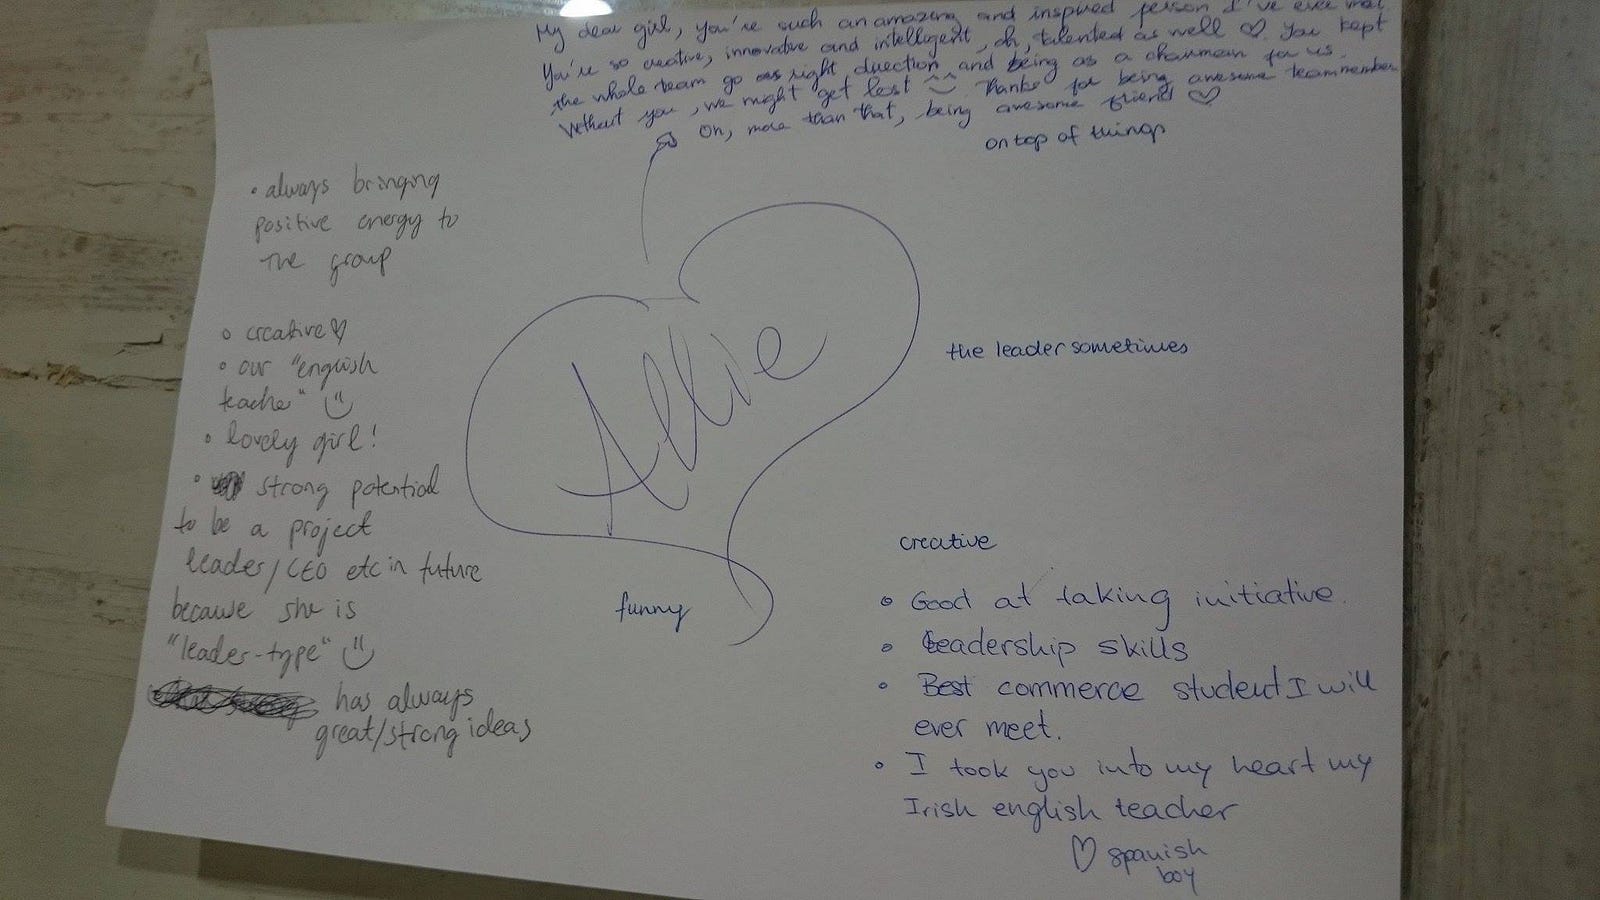 My dear girl, you're such an amazing and inspired person I've ever met
You're so creative, innovative and intelligent, oh, talented as well ♡. You kept
the whole team go as right direction and being as a chairman for us.
Without you, we might get lost ^^ Thanks for being awesome teammember
Oh, more than that, being awesome friend ♡
on top of things
• always bringing
positive energy to
the group
• creative ♡
• our "english
teacher"
• lovely girl!
• strong potential
to be a project
leader/CEO etc in future
because she is
"leader-type"
has always
great/strong ideas
Allie
the leader sometimes
funny
creative
• Good at taking initiative.
• Leadership skills
• Best commerce student I will
ever meet.
• I took you into my heart my
Irish english teacher
♡ spanish
boy